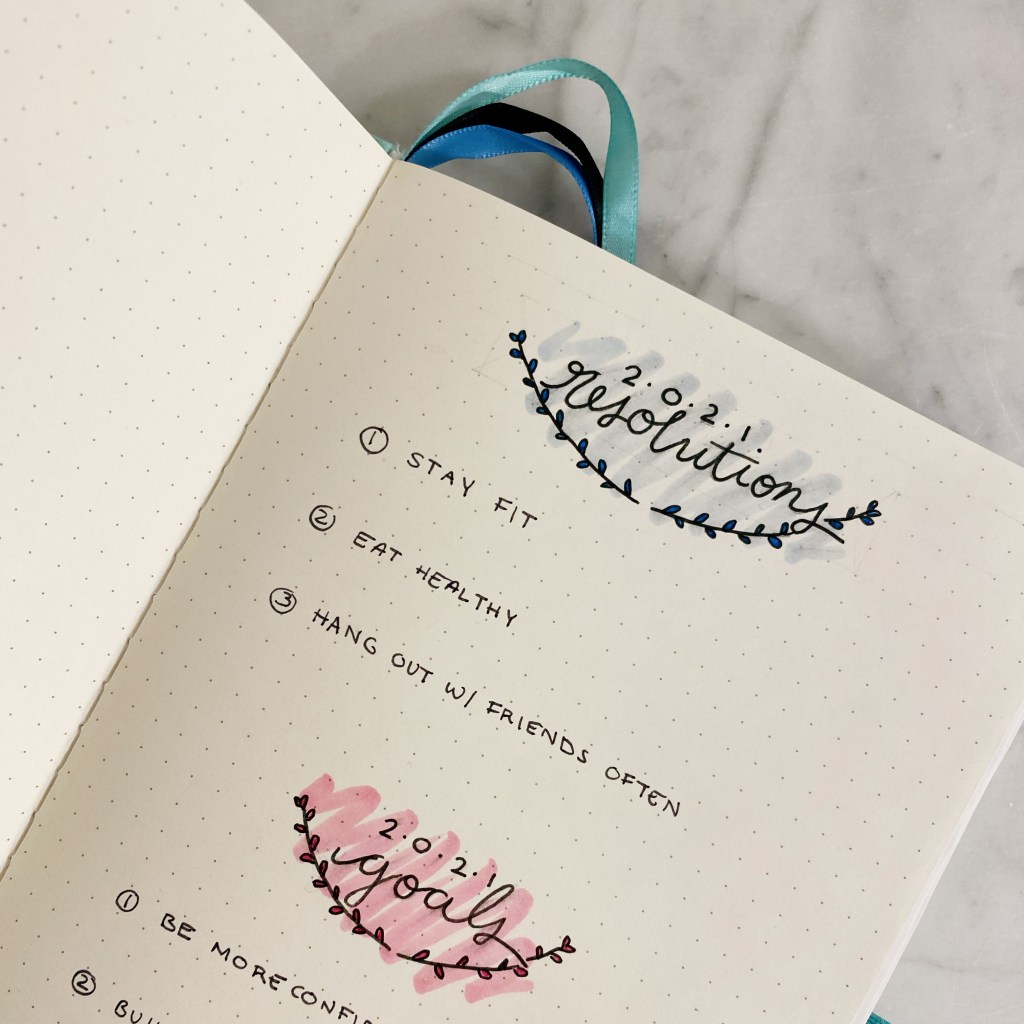 2.0.2.1
resolutions
① STAY FIT
② EAT HEALTHY
③ HANG OUT W/ FRIENDS OFTEN
2.0.2.1
goals
① BE MORE
②